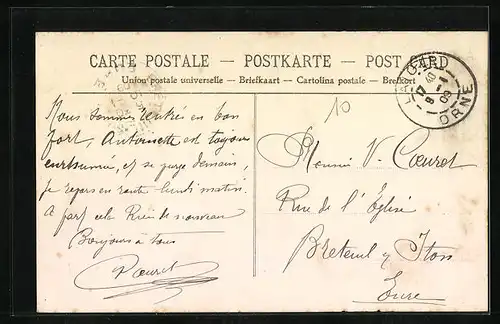 CARTE POSTALE — POSTKARTE — POST CARD
Union postale universelle — Briefkaart — Cartolina postale — Brefkort
ORNE
10
Nous sommes rentrés en bon
port, Antoinette est toujours
enrhumée, et se purge demain
je repars en route lundi matin.
A part cela Rien de nouveau
Bonjours à tous
Cœuret
Monsieur V. Cœuret
Rue de l'Église
Breteuil s/ Iton
Eure